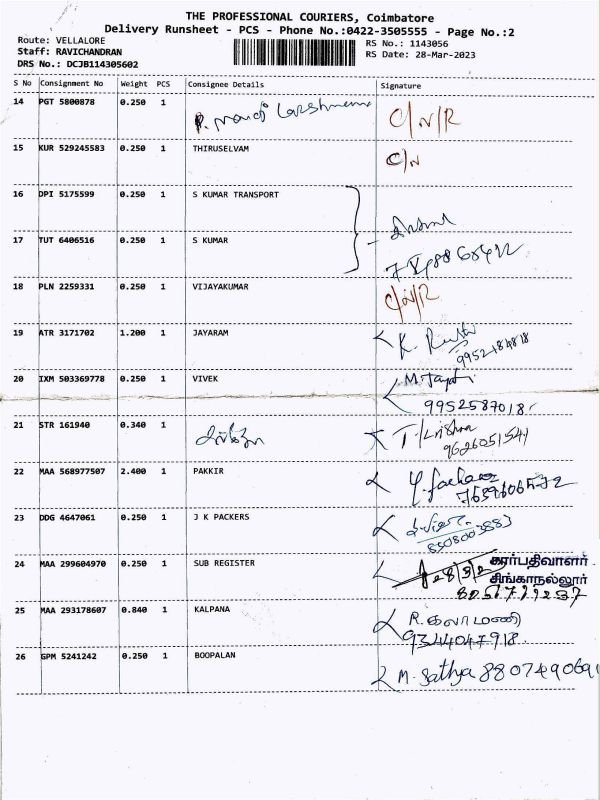 THE PROFESSIONAL COURIERS, Coimbatore
Delivery Runsheet - PCS - Phone No.:0422-3505555 - Page No.:2
Route: VELLALORE
Staff: RAVICHANDRAN
DRS No.: DCJB114305602
RS No.: 1143056
RS Date: 28-Mar-2023
S No Consignment No Weight PCS Consignee Details Signature
14 PGT 5800878 0.250 1 C/N/R
15 KUR 529245583 0.250 1 THIRUSELVAM C/N
16 DPI 5175599 0.250 1 S KUMAR TRANSPORT
17 TUT 6406516 0.250 1 S KUMAR
18 PLN 2259331 0.250 1 VIJAYAKUMAR C/N/R
19 ATR 3171702 1.200 1 JAYARAM K.
20 IXM 503369778 0.250 1 VIVEK M.
9952587018
21 STR 161940 0.340 1 T. Krishna
9626051541
22 MAA 568977507 2.400 1 PAKKIR
23 DDG 4647061 0.250 1 J K PACKERS
24 MAA 299604970 0.250 1 SUB REGISTER
சிங்காநல்லூர்
25 MAA 293178607 0.840 1 KALPANA R. கலாமணி
9344047918
26 GPM 5241242 0.250 1 BOOPALAN M. Sathya 880749069